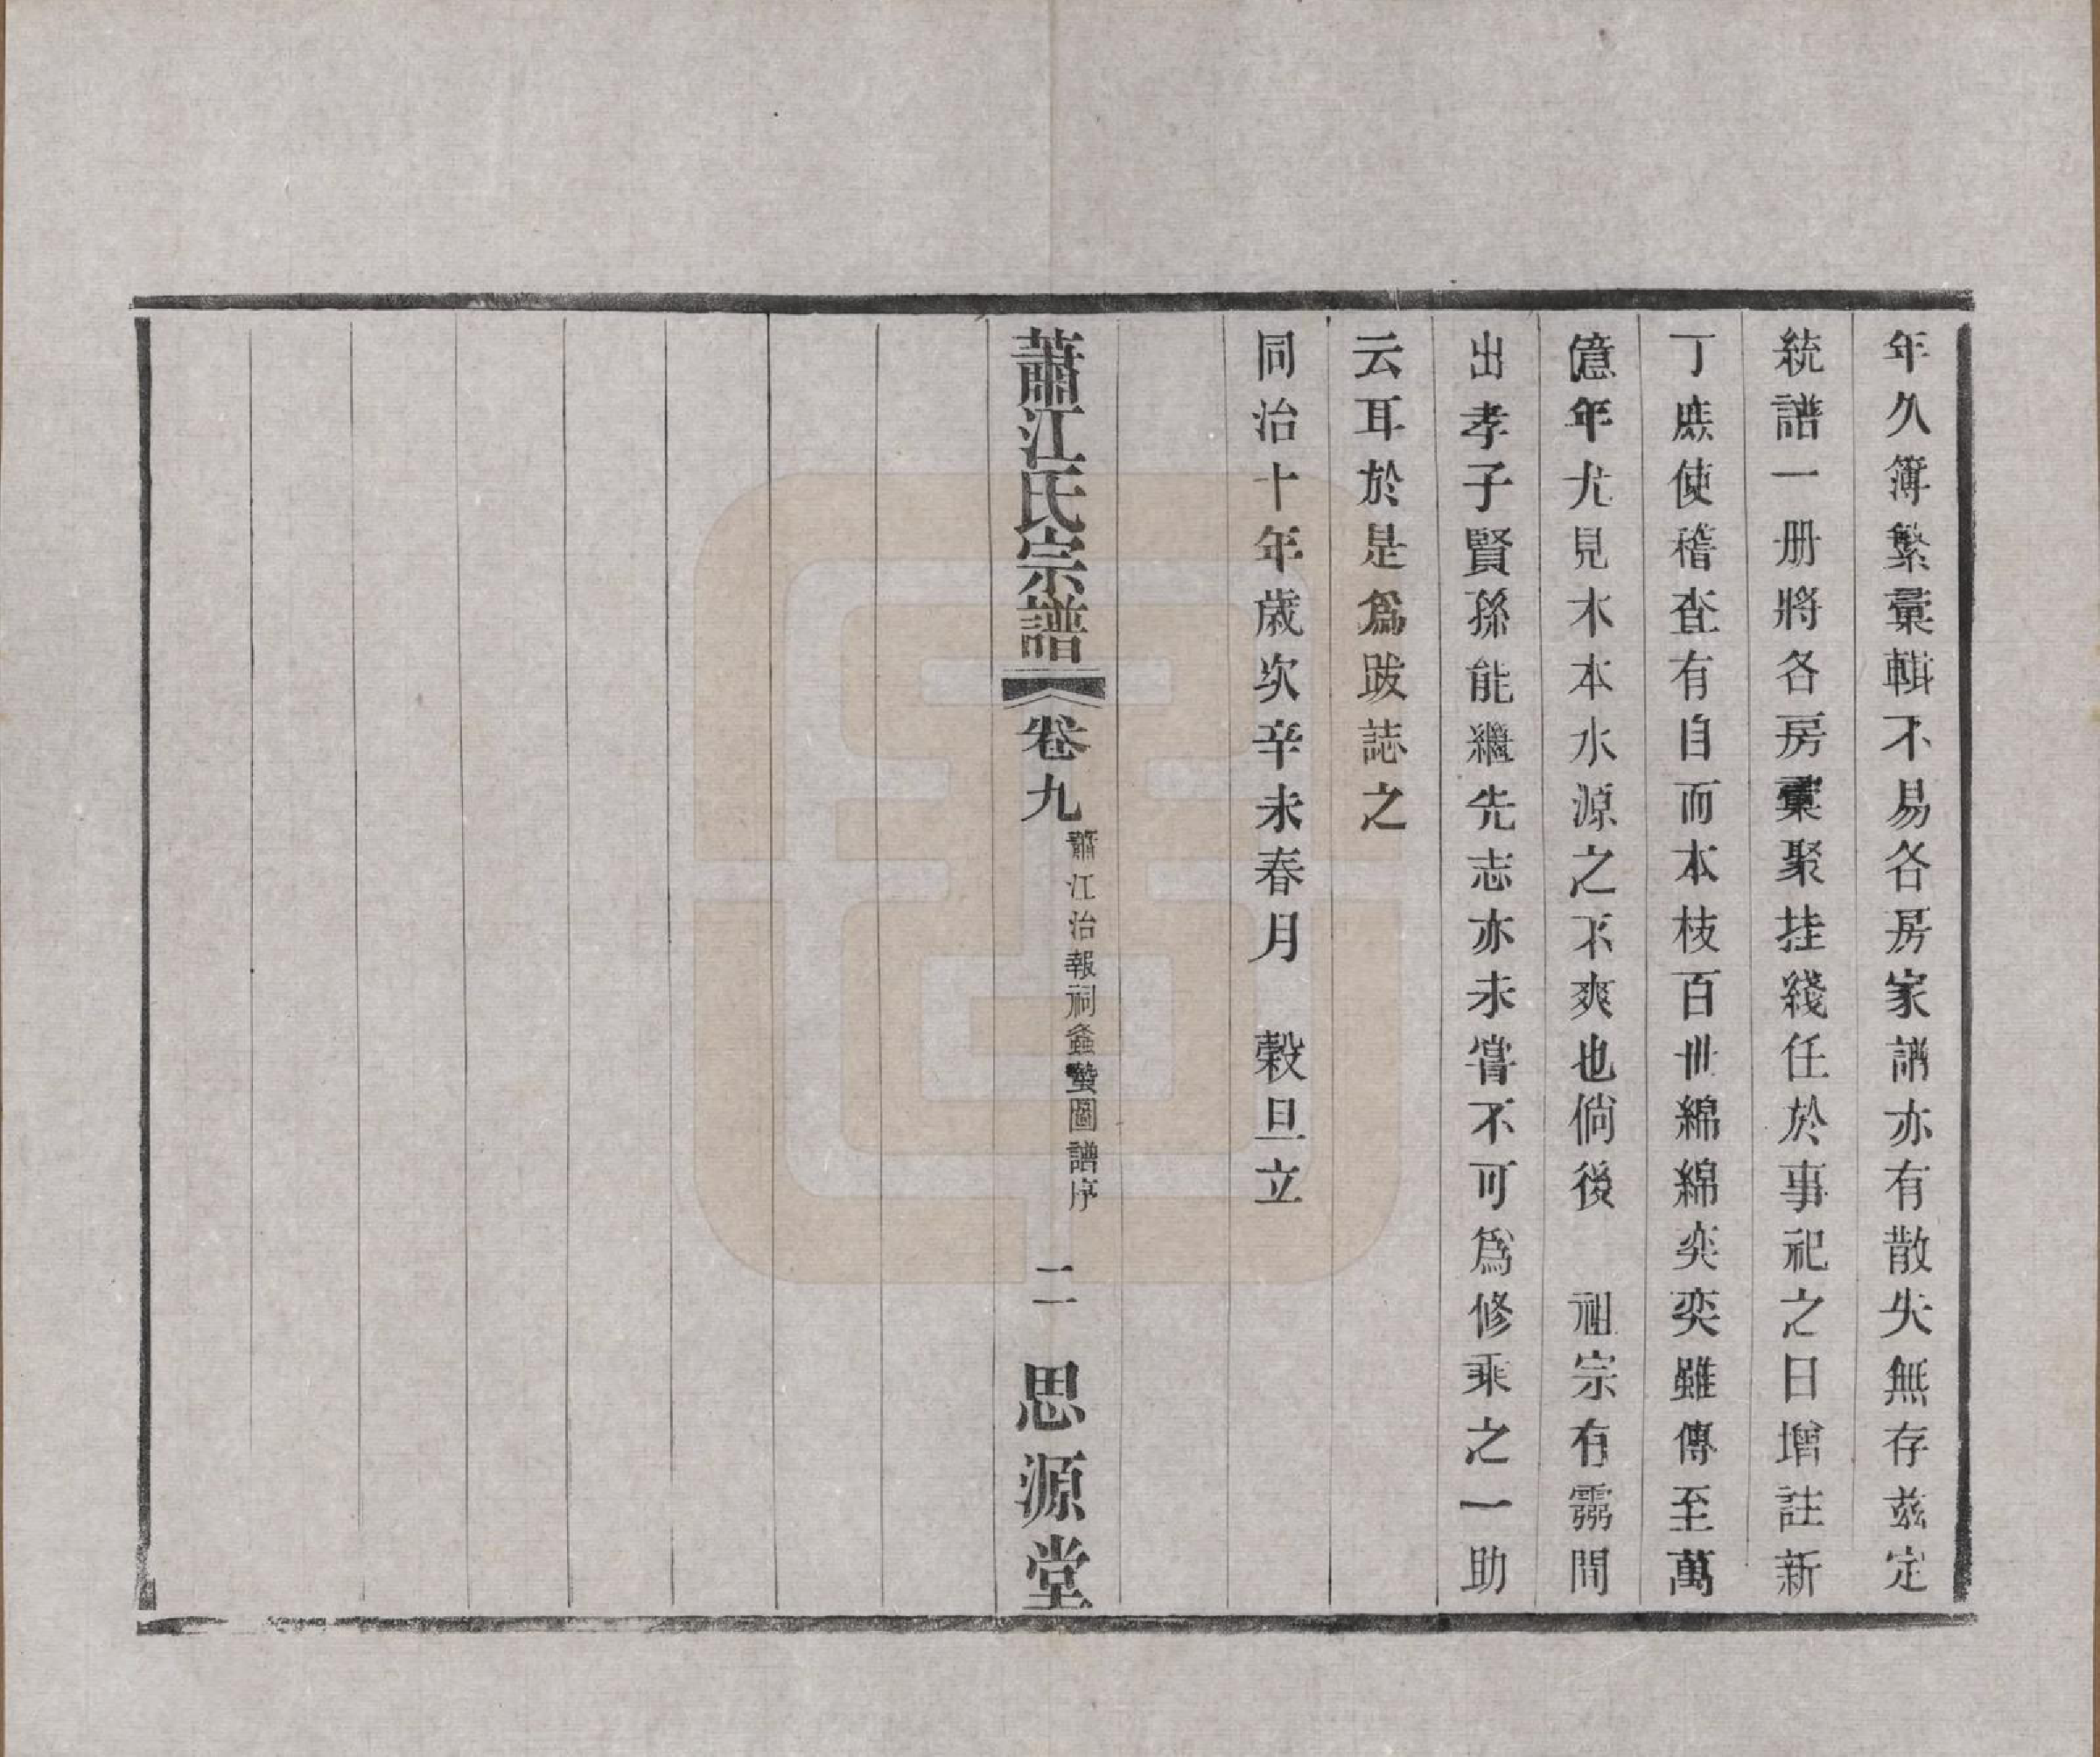 年久簿繁彙輯不易各房家譜亦有散失無存兹定
統譜一册將各房彙聚挂綫任於事祀之日增註新
丁庶使稽查有自而本枝百世綿綿奕奕雖傳至萬
億年尤見木本水源之不爽也倘後　祖宗有靈間
出孝子賢孫能繼先志亦未嘗不可爲修乘之一助
云耳於是爲跋誌之
同治十年歲次辛未春月　穀旦立
蕭江氏宗譜　卷九　蕭江治報祠螽蟄圖譜序　二　思源堂